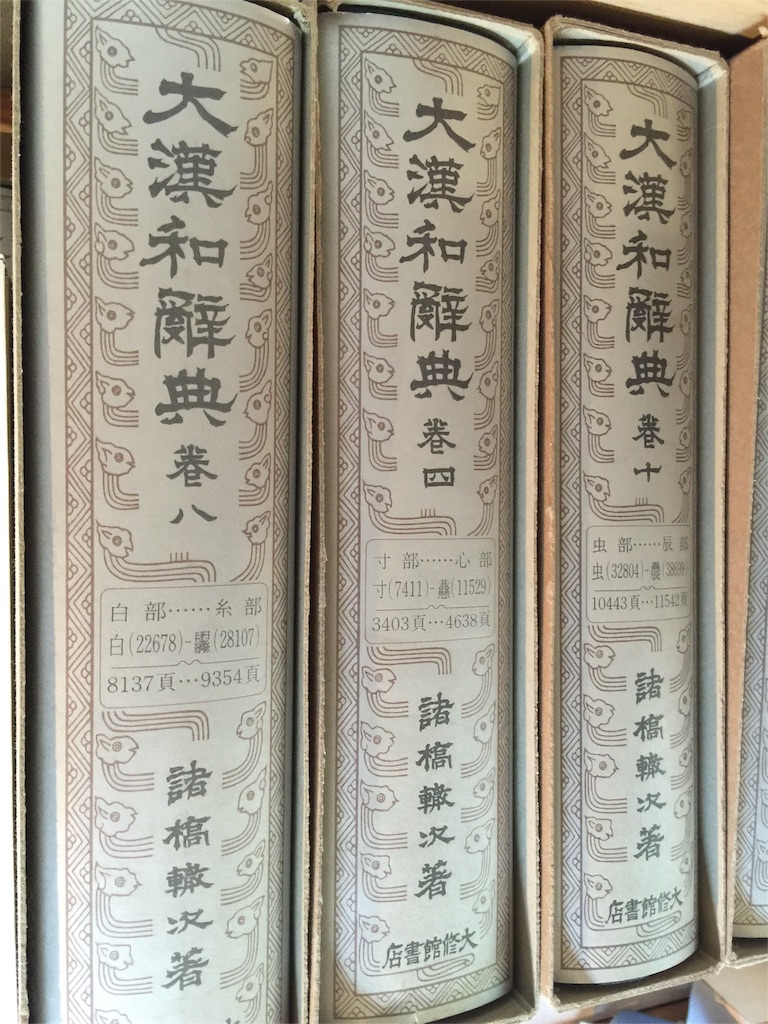 大漢和辭典 卷八
白部……糸部
白(22678)-(28107)
8137頁…9354頁
諸橋轍次著
大漢和辭典 卷四
寸部……心部
寸(7411)-(11529)
3403頁…4638頁
諸橋轍次著
大修館書店
大漢和辭典 卷十
虫部……辰部
虫(32804)-農(38699)
10443頁…11542頁
諸橋轍次著
大修館書店